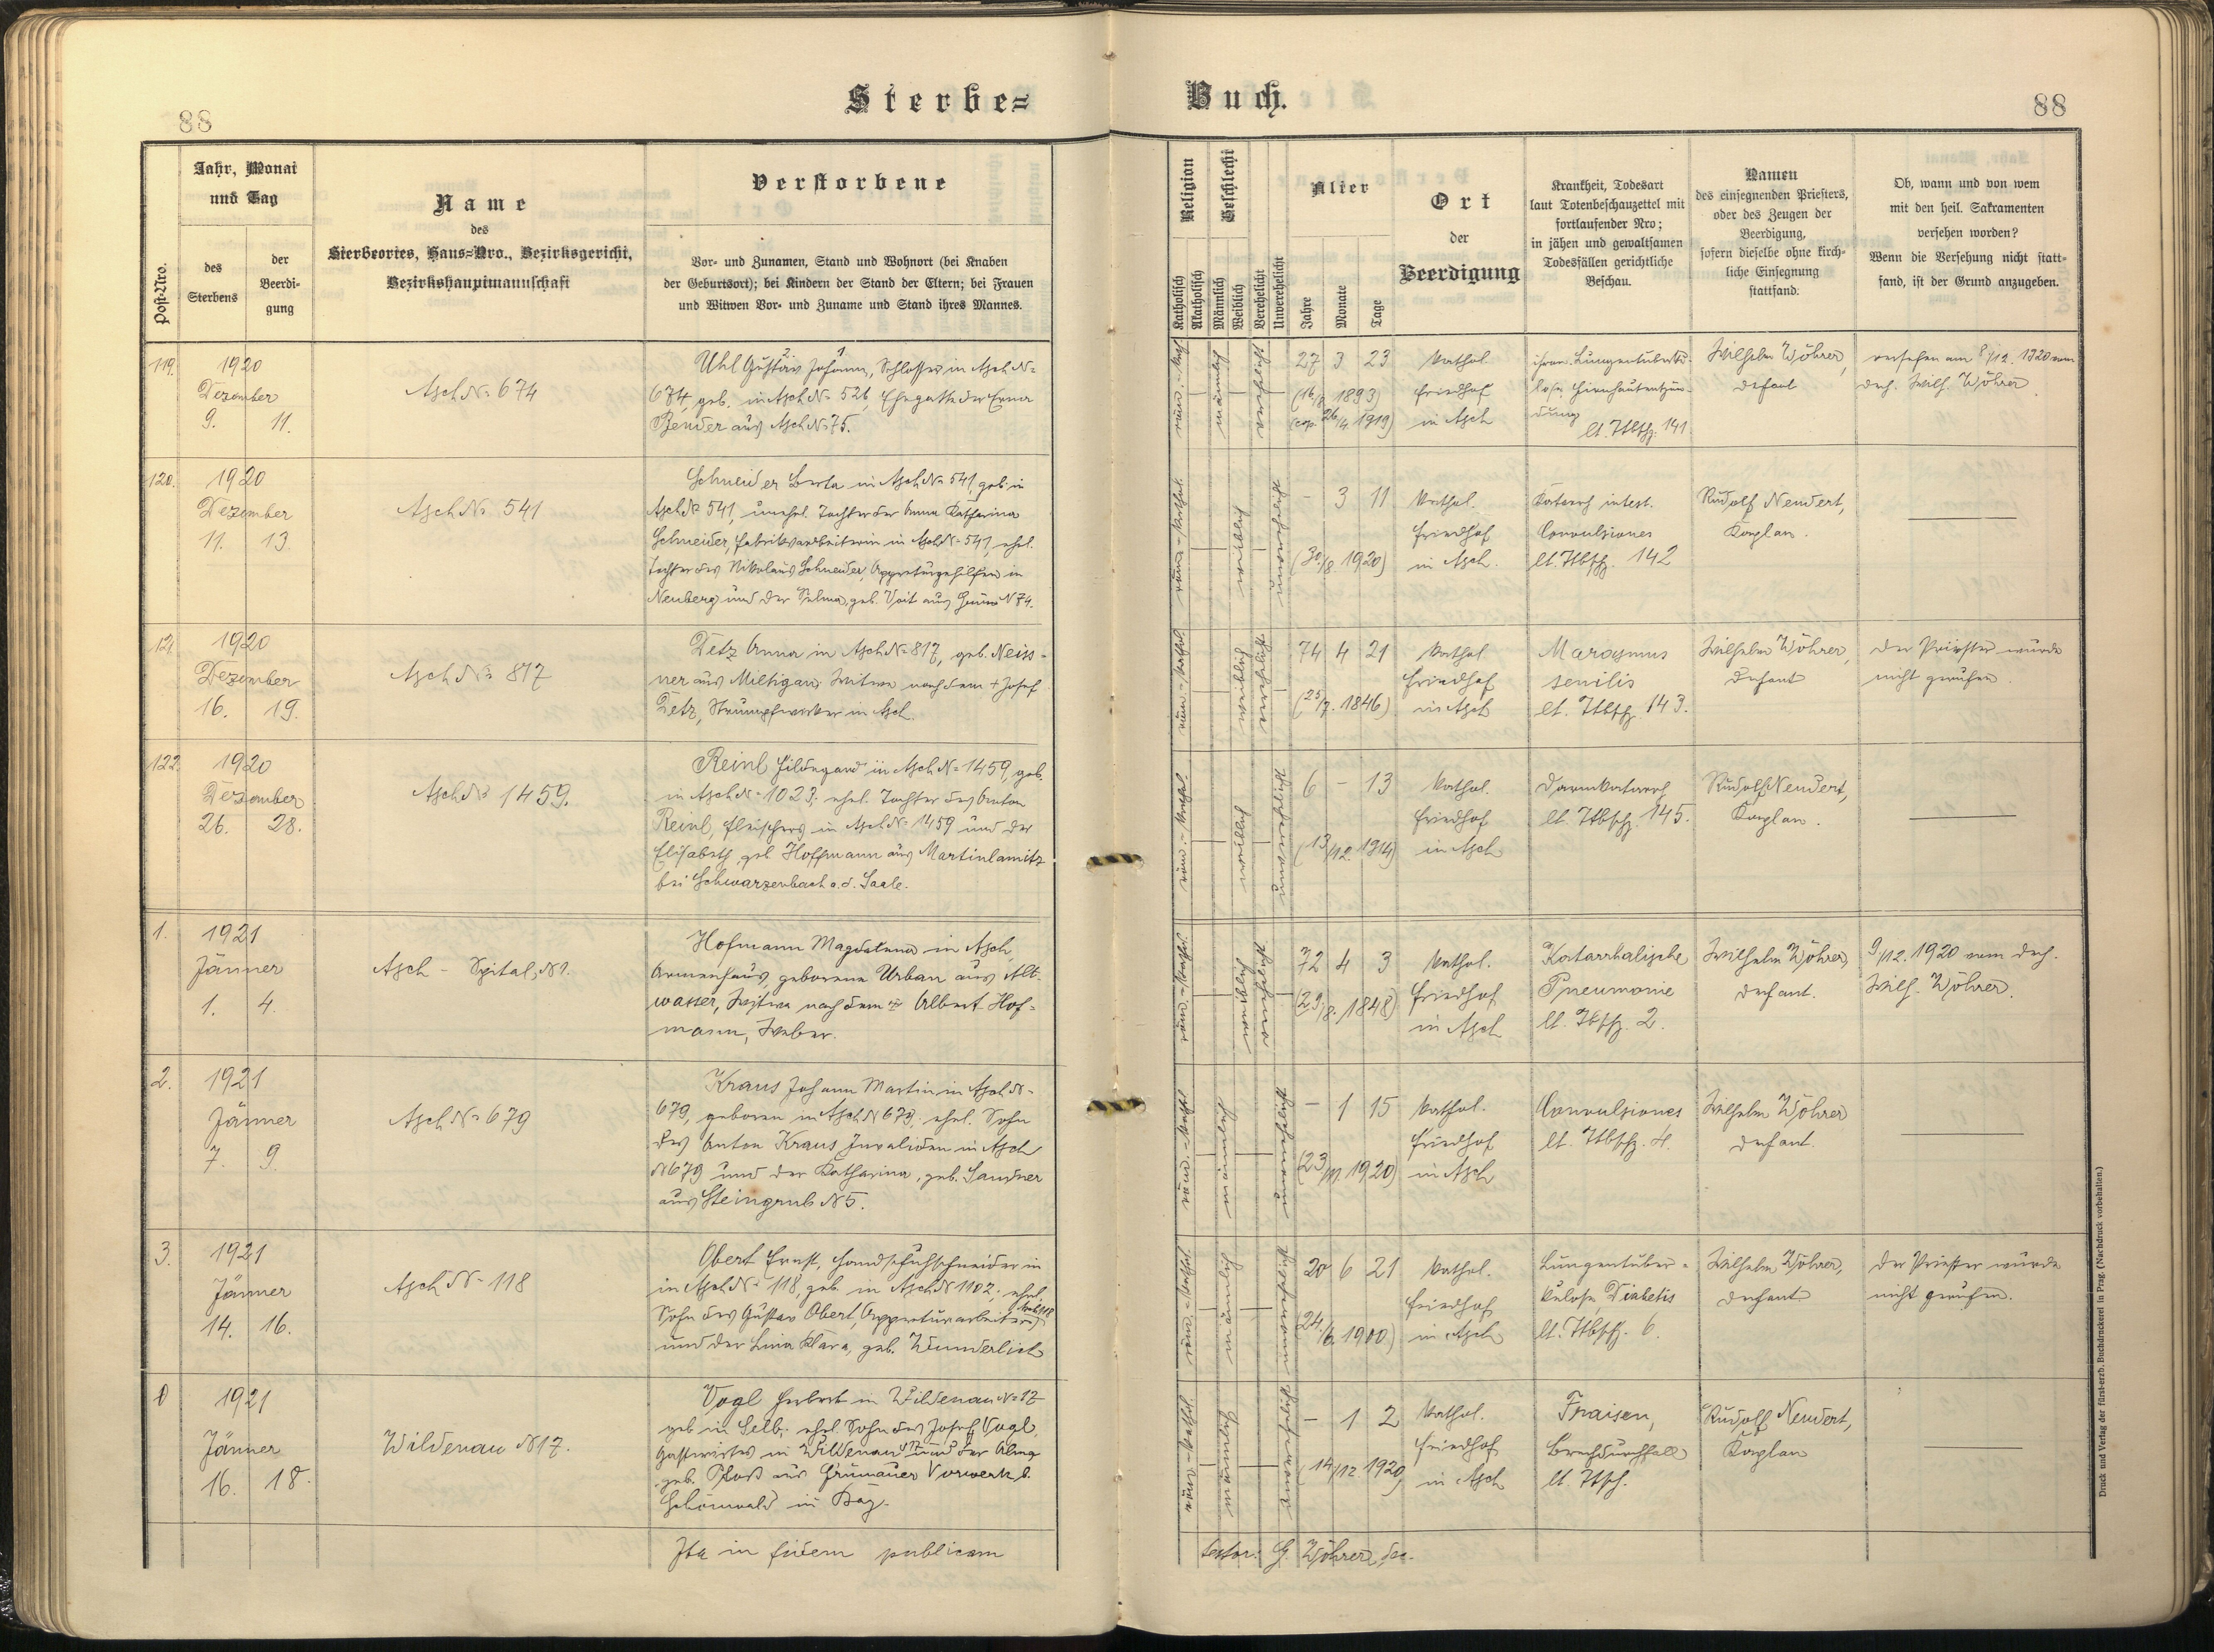 88
Sterbe=
Buch.
88
Post=Nro.
Jahr, Monat
und Tag
des
Sterbens
der
Beerdi-
gung
Name
des
Sterbeortes, Haus=Nro., Bezirksgericht,
Bezirkshauptmannschaft
Verstorbene
Vor- und Zunamen, Stand und Wohnort (bei Knaben
der Geburtsort); bei Kindern der Stand der Eltern; bei Frauen
und Witwen Vor- und Zuname und Stand ihres Mannes.
Religion
Katholisch
Akatholisch
Geschlecht
Männlich
Weiblich
Verehelicht
Unverehelicht
Alter
Jahre
Monate
Tage
Ort
der
Beerdigung
Krankheit, Todesart
laut Totenbeschauzettel mit
fortlaufender Nro;
in jähen und gewaltsamen
Todesfällen gerichtliche
Beschau.
Namen
des einsegnenden Priesters,
oder des Zeugen der
Beerdigung,
sofern dieselbe ohne kirch-
liche Einsegnung
stattfand.
Ob, wann und von wem
mit den heil. Sakramenten
versehen worden?
Wenn die Versehung nicht statt-
fand, ist der Grund anzugeben.
119.
1920
Dezember
9. 11.
Asch № 674
Uhl Gustav Johann, Schlosser in Asch №
674, geb. in Asch № 526, Ehegatte der Erna
Bender aus Asch № 75.
röm. kath
männlich
verehelicht
27 3 23
(16/8. 1893)
(cop. 26/4. 1919)
kathol.
Friedhof
in Asch
chron. Lungentuberku-
lose, Hirnhautentzün-
dung
lt. Ttbschz. 141
Wilhelm Wöhrer,
Dechant
versehen am 8/12. 1920 vom
Dech. Wilh. Wöhrer
120.
1920
Dezember
11. 13.
Asch № 541
Schneider Berta in Asch № 541, geb. in
Asch № 541, unehel. Tochter der Anna Katharina
Schneider, Fabriksarbeiterin in Asch № 541, ehel.
Tochter des Nikolaus Schneider, Appreturgehilfen in
Neuberg und der Selma, geb. Voit aus № 74.
röm.-kathol.
weiblich
unverehelicht
- 3 11
(30./8. 1920)
kathol.
Friedhof
in Asch.
Katarrh intest.
Convulsiones
lt. Ttbschz. 142
Rudolf Neudert,
Kaplan.
121.
1920
Dezember
16. 19.
Asch № 817
Tetz Anna in Asch № 817, geb. Neiss-
ner aus Miltigau, Witwe nach dem + Josef
Tetz, Strumpfwirker in Asch.
röm.-kathol.
weiblich
verehelicht
74 4 21
(25/7. 1846)
kathol
Friedhof
in Asch
Marasmus
senilis
lt. Ttbschz. 143.
Wilhelm Wöhrer,
Dechant
Der Priester wurde
nicht gerufen.
122.
1920
Dezember
26. 28.
Asch № 1459.
Reinl Hildegard in Asch № 1459, geb.
in Asch № 1023; ehel. Tochter des Anton
Reinl, Fleischers in Asch № 1459 und der
Elisabeth geb. Hoffmann aus Martinlamitz
bei Schwarzenbach a. d. Saale.
röm.-kathol.
weiblich
unverehelicht
6 - 13
(13/12. 1914)
kathol.
Friedhof
in Asch
Darmkatarrh
lt. Ttbschz. 145.
Rudolf Neudert,
Kaplan.
1.
1921
Jänner
1. 4.
Asch - Spital, № 1.
Hofmann Magdalena in Asch,
Armenhaus, geborene Urban aus Alt-
wasser, Witwe nach dem + Albert Hof-
mann, Weber.
röm.-kathol.
weiblich
verehelicht
72 4 3
(29./8. 1848)
kathol.
Friedhof
in Asch
Katarrhalische
Pneumonie
lt. Ttbschz. 2.
Wilhelm Wöhrer,
Dechant.
9/12. 1920 vom Dech.
Wilh. Wöhrer.
2.
1921
Jänner
7. 9.
Asch № 679
Kraus Johann Martin in Asch №
679, geboren in Asch № 679, ehel. Sohn
des Anton Kraus, Invaliden in Asch
№ 679 und der Katharina, geb. Sandner
aus Steingrub № 5.
röm.-kathol
männlich
unverehelicht
- 1 15
(23/11. 1920)
kathol.
Friedhof
in Asch
Convulsiones
lt. Ttbschz. 4.
Wilhelm Wöhrer
Dechant.
3.
1921
Jänner
14. 16.
Asch № 118
Obert Ernst, Handschuhschneider in
in Asch № 118, geb. in Asch № 1102; ehel.
Sohn des Gustav Obert, Appreturarbeiters
und der Lina Klara, geb. Wunderlich
röm.-kathol.
männlich
unverehelicht
20 6 21
(24./6. 1900)
kathol.
Friedhof
in Asch
Lungentuber-
kulose, Diabetis
lt. Ttbschz. 6.
Wilhelm Wöhrer,
Dechant
Der Priester wurde
nicht gerufen.
0
1921
Jänner
16. 18.
Wildenau № 17.
Vogl Herbert in Wildenau № 17
geb in Selb; ehel. Sohn des Josef Vogl,
Gastwirtes in Wildenau № 17 und der Alma
geb. Ploß aus Grünauer Vorwerk b.
Schönwald in Bay.
röm.-kathol.
männlich
unverehelicht
- 1 2
(14/12. 1920)
kathol.
Friedhof
in Asch
Fraisen,
Brechdurchfall
lt. Ttsch.
Rudolf Neudert,
Kaplan
Ita in fidem publicam
testor: G. Wöhrer, dec.
Druck und Verlag der fürst-erzb. Buchdruckerei in Prag. (Nachdruck vorbehalten.)